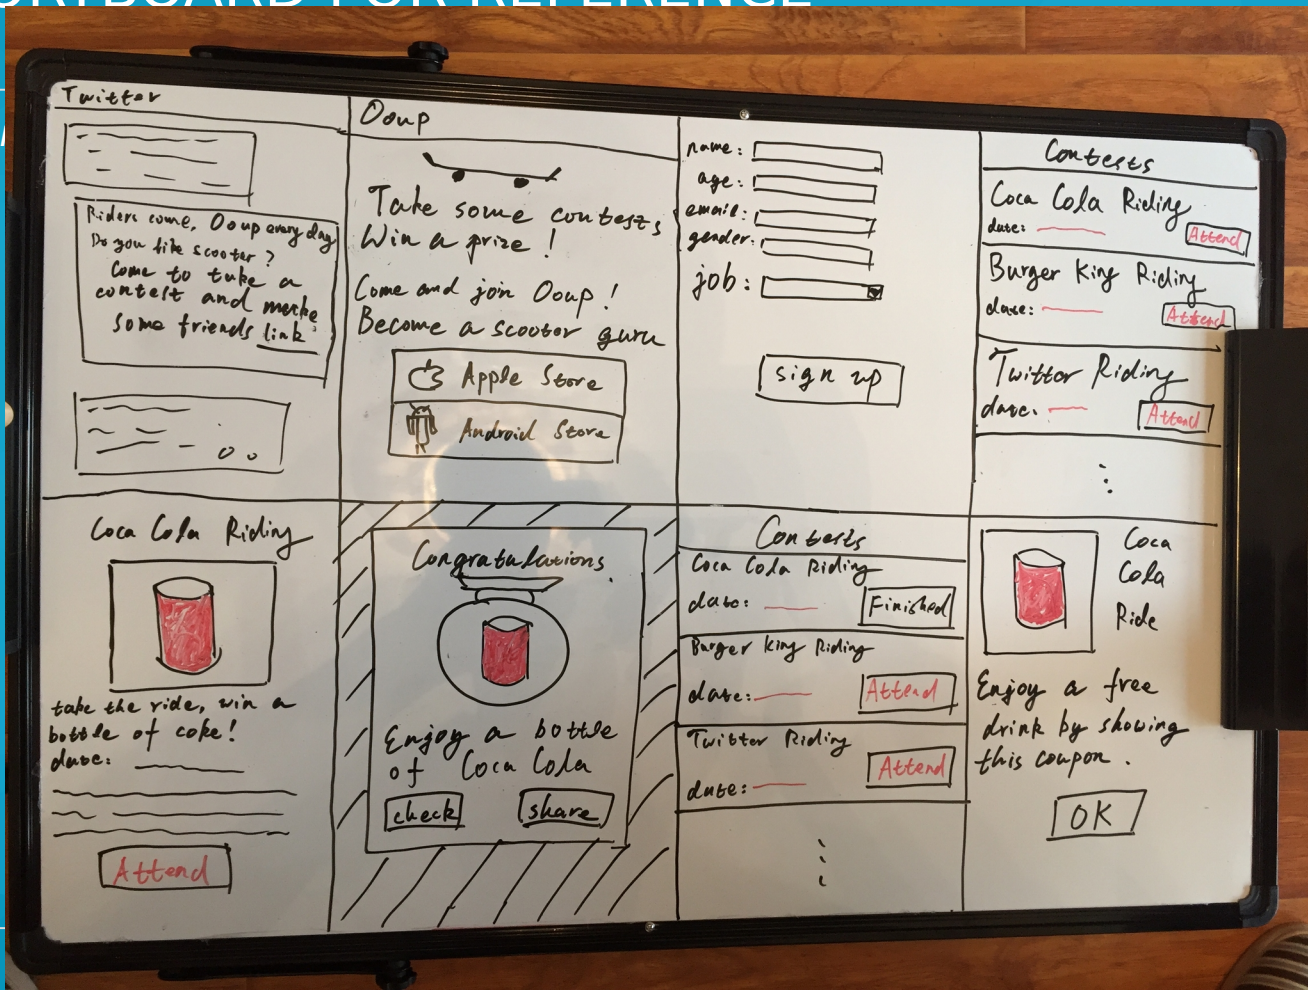 ORYBOARD FOR REFERENCE
Twitter
Riders come, Ooup every day
Do you like scooter?
Come to take a
contest and make
some friends link
Ooup
Take some contests
Win a prize!
Come and join Ooup!
Become a scooter guru
Apple Store
Android Store
name:
age:
email:
gender:
job:
sign up
Contests
Coca Cola Riding
date:
Attend
Burger King Riding
date:
Attend
Twitter Riding
date.
Attend
Coca Cola Riding
take the ride, win a
bottle of coke!
date:
Attend
Congratulations
Enjoy a bottle
of Coca Cola
check share
Contests
Coca Cola Riding
date:
Finished
Burger King Riding
date:
Attend
Twitter Riding
date:
Attend
Coca
Cola
Ride
Enjoy a free
drink by showing
this coupon.
OK